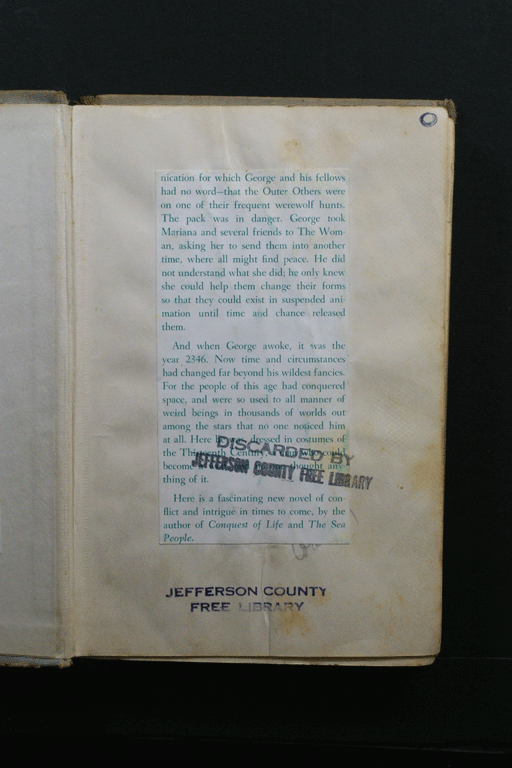 nication for which George and his fellows
had no word—that the Outer Others were
on one of their frequent werewolf hunts.
The pack was in danger. George took
Mariana and several friends to The Wom-
an, asking her to send them into another
time, where all might find peace. He did
not understand what she did; he only knew
she could help them change their forms
so that they could exist in suspended ani-
mation until time and chance released
them.
And when George awoke, it was the
year 2346. Now time and circumstances
had changed far beyond his wildest fancies.
For the people of this age had conquered
space, and were so used to all manner of
weird beings in thousands of worlds out
among the stars that no one noticed him
at all. Here dressed in costumes of
the Thirteenth Century, who could
become thought any-
thing of it.
DISCARDED BY
JEFFERSON COUNTY FREE LIBRARY
Here is a fascinating new novel of con-
flict and intrigue in times to come, by the
author of Conquest of Life and The Sea
People.
JEFFERSON COUNTY
FREE LIBRARY